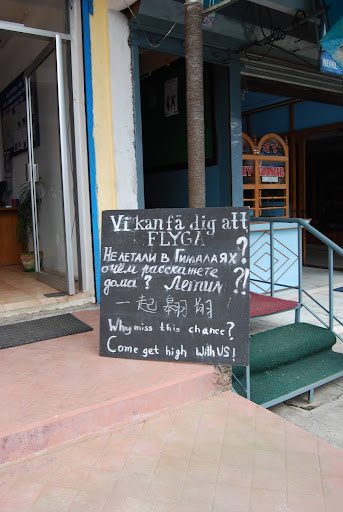 Vi kan få dig att
FLYGA
Не летали в Гималаях?
о чём расскажете
дома? Летим ?!
一起翱翔
Why miss this chance?
Come get high with US!